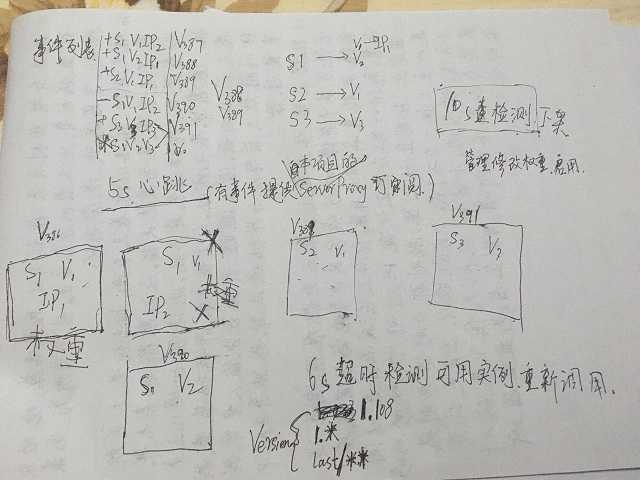 事件列表
+S1 V1 IP2 V387
+S1 V2 IP1 V388
+S2 V1 IP1 V389
-S1 V1 IP2 V390
+S3 V3 IP3 V391
S1 V2 V3
V388
V389
S1 → V1-IP1
V2
S2 → V1
S3 → V3
10s查检测 下架
管理修改权重.启用.
5s 心跳 (有事件提供 ServerProxy 可实调.)
本项目的
V386
S1 V1
IP1
权重
S1 V1
IP2
权重
V389
S2 V1
V391
S3 V3
V390
V2
6s超时检测可用实例.重新调用.
Version
1.108
1.米
last/米米